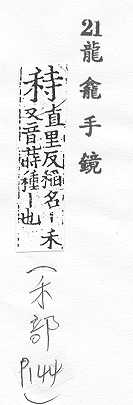 21龍龕手鏡
秲直里反稻名丨禾
又音蒔種丨也
(禾部P144)